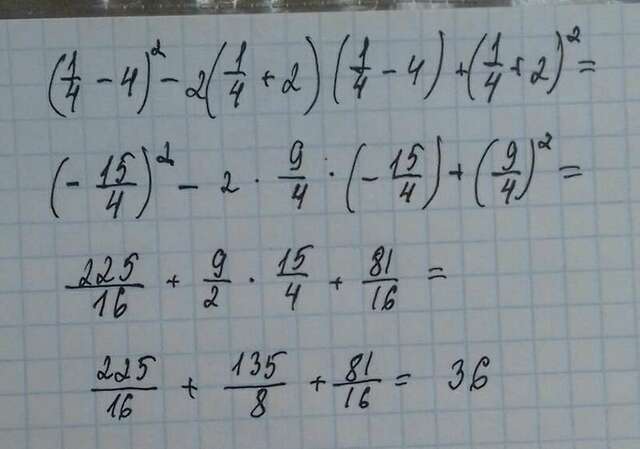 (1/4 - 4)² - 2(1/4 + 2)(1/4 - 4) + (1/4 + 2)² =
(- 15/4)² - 2 · 9/4 · (- 15/4) + (9/4)² =
225/16 + 9/2 · 15/4 + 81/16 =
225/16 + 135/8 + 81/16 = 36